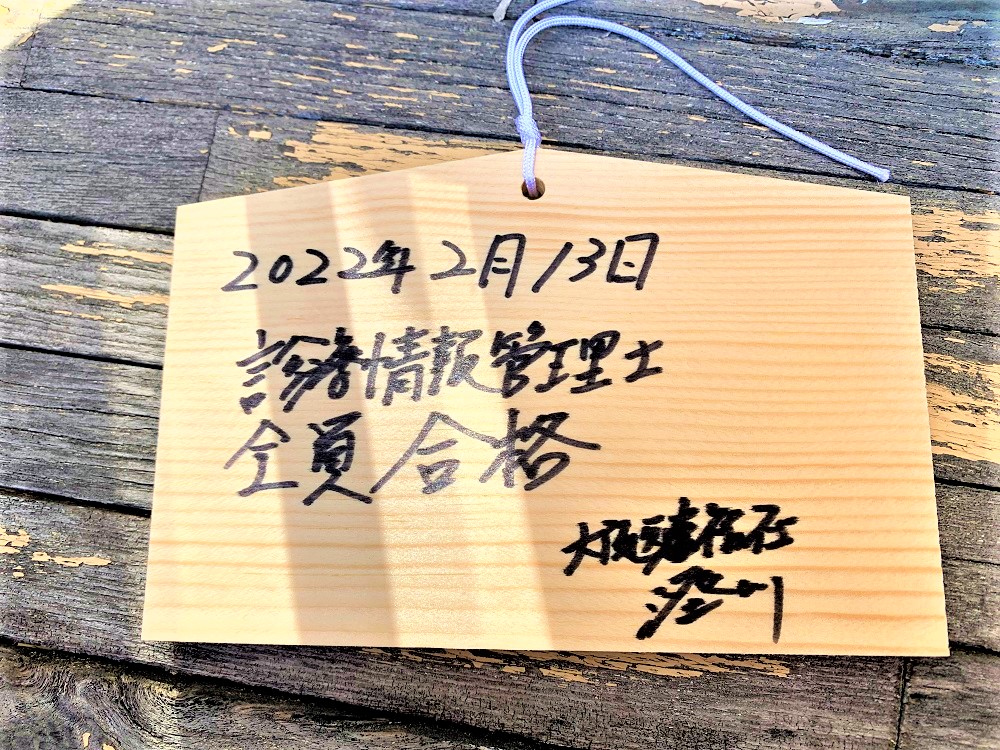 2022年2月13日
診療情報管理士
全員合格
大阪医療福祉
澄川